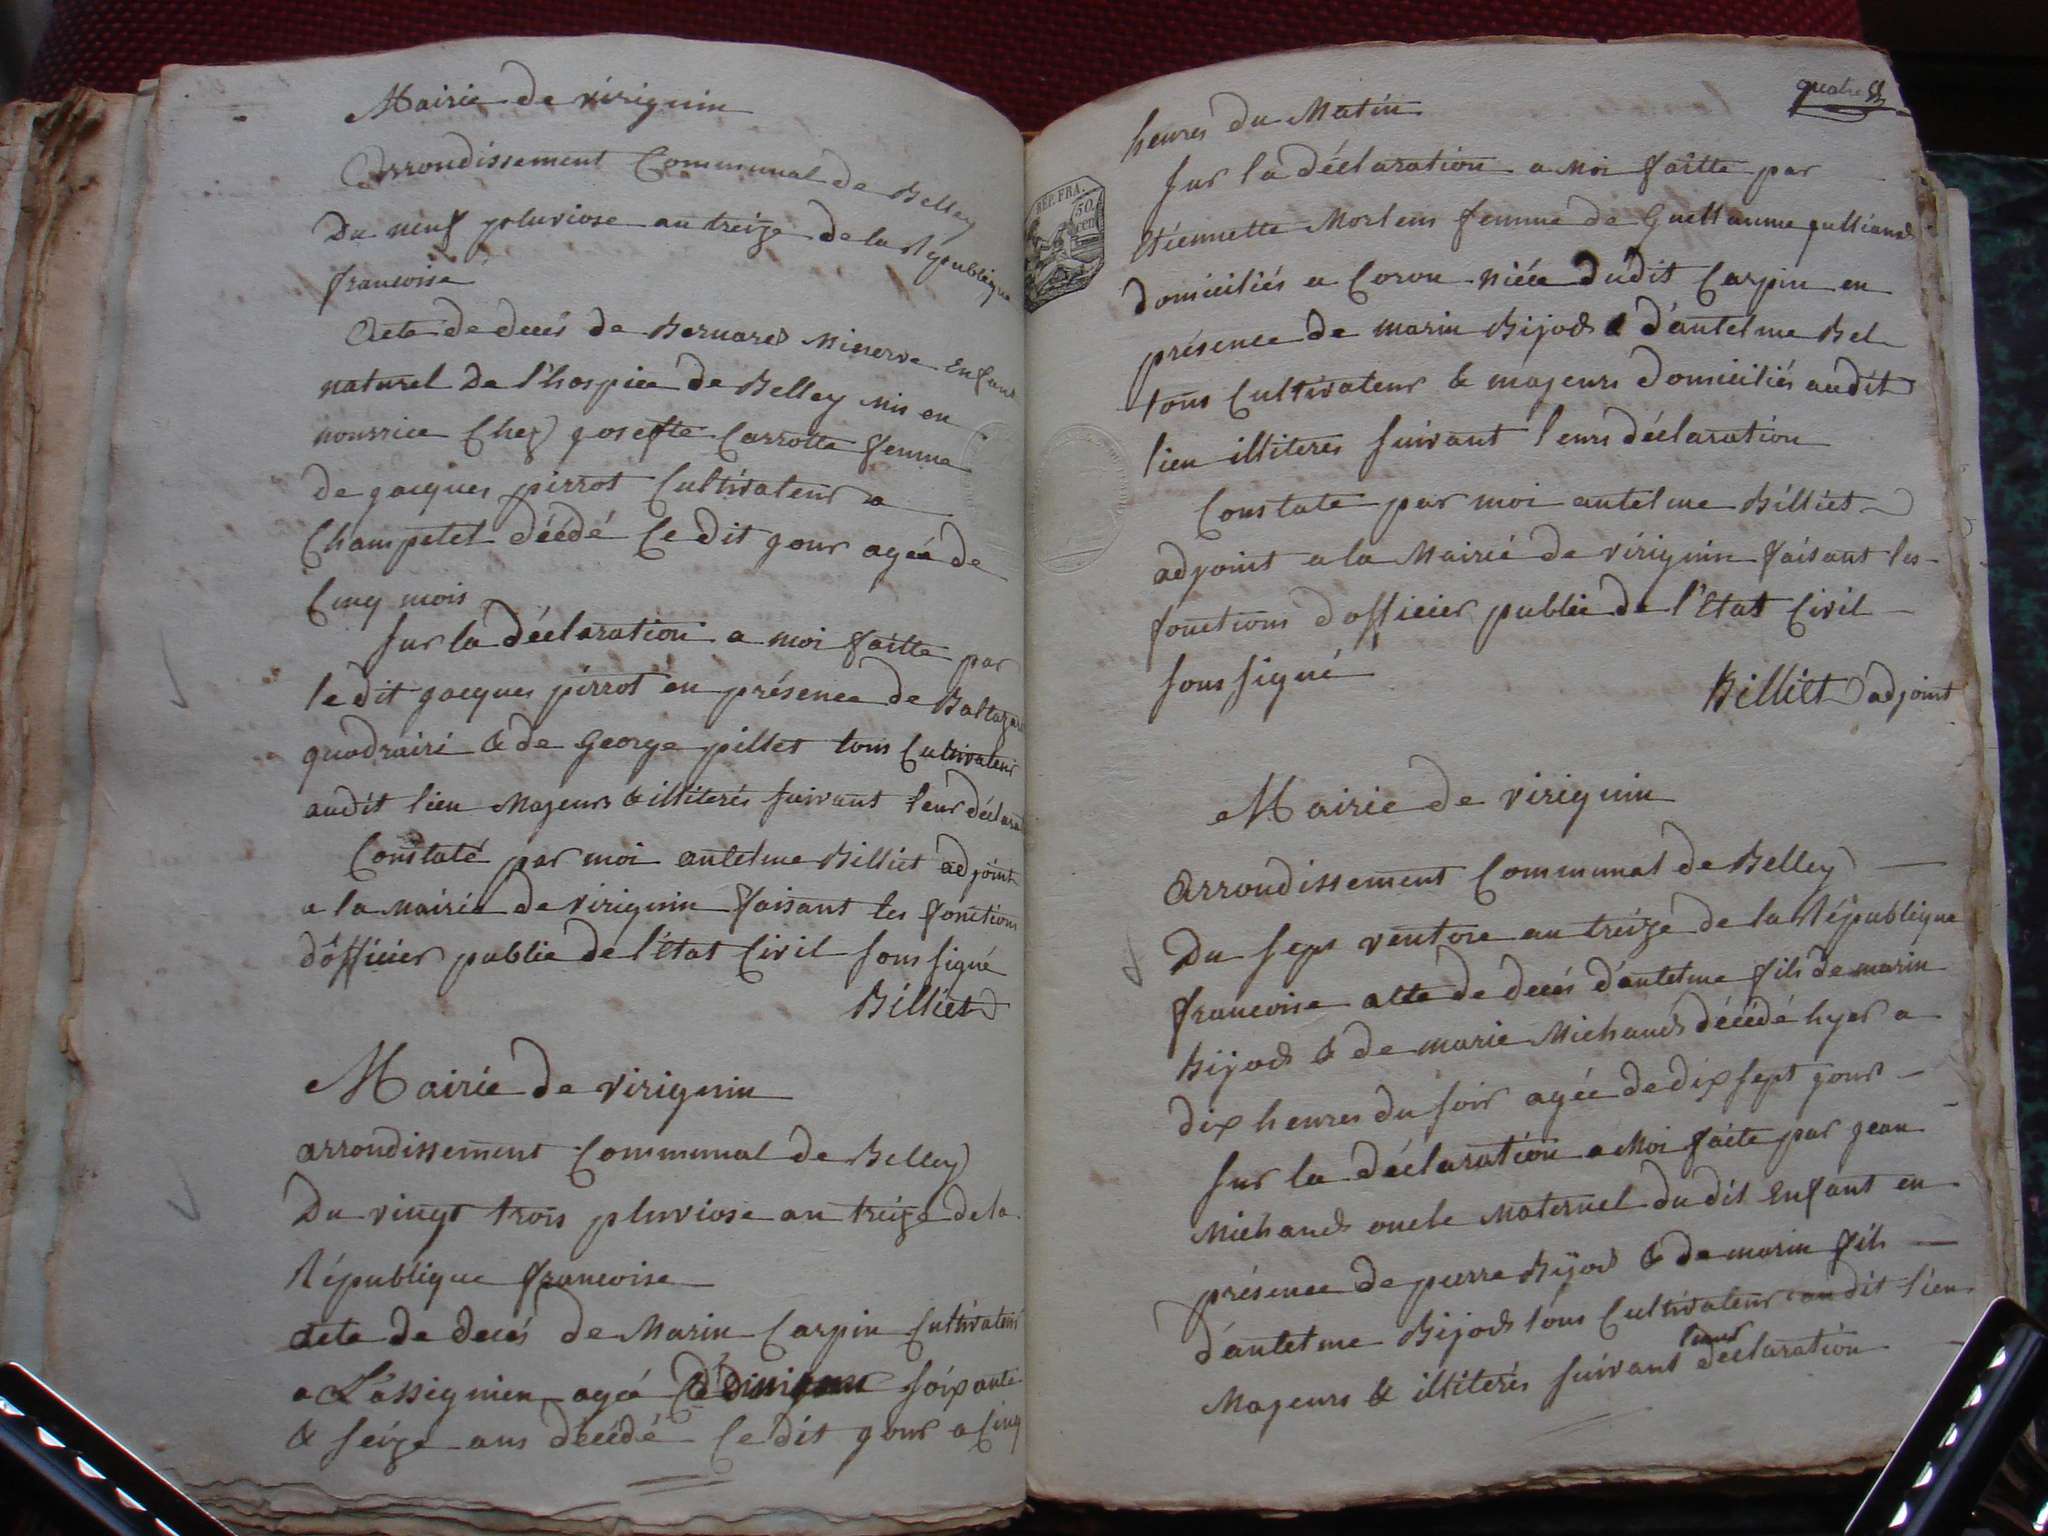 Mairie de virignin
Arrondissement Communal de Belley
Du neuf pluviose an treize de la Republique
francoise
Acte de decés de Bernard Minerve Enfant
naturel De l'hospice de Belley mis en
nourrice Chez josefte Carrotte femme
de jacques pirrot Cultivateur a
Champetel décédé Ce dit jour agée de
Cinq mois
sur la déclaration a moi faitte par
le dit jacques pirrot en présence de Baltazar
quadrairi & de George pillet tous Cultivateur
audit lieu Majeurs & illiterés suivant leur déclarat
Constaté par moi antelme Billiet adjoint
a la mairie de virignin faisant les fonctions
d'officier public de l'état Civil sous signé
Billiet
Mairie de virignin
arrondissement Communal de Belley
Du vingt trois pluviose an treize de la
République francoise
acte de decés de Marin Carpin Cultivateur
a Lassignieu agé soixante
& seize ans décédé Ce dit jour a Cinq
quatre
heures du Matin
sur la déclaration a moi faitte par
étiennette Mortens femme de Guellaume
domiciliés a Coron niéce dudit Carpin en
présence de marin Bijod & d'antelme Bel
tous Cultivateur & majeurs domiciliés audit
lieu illiteres suivant leurs déclaration
REP. FRA.
50
cen
Constate par moi antelme Billiet
adjoint a la Mairié de virignin faisant les
fonctions d'officier public de l'état Civil
sous signé
Billiet adjoint
Mairie de virignin
Arrondissement Communal de Belley
Du sept ventose an treize de la République
francoise atte de decés d'antelme fils de marin
bijod & de marie Michaud décédé hyer a
dix heures du soir agée de dix sept jours
sur la déclaration a Moi faite par jean
Michaud oncle Maternel dudit Enfant en
présence de pierre Bijod & de marin fils
d'antelme Bijod tous Cultivateur audit lieu
leur
Majeurs & illiterés suivant declaration